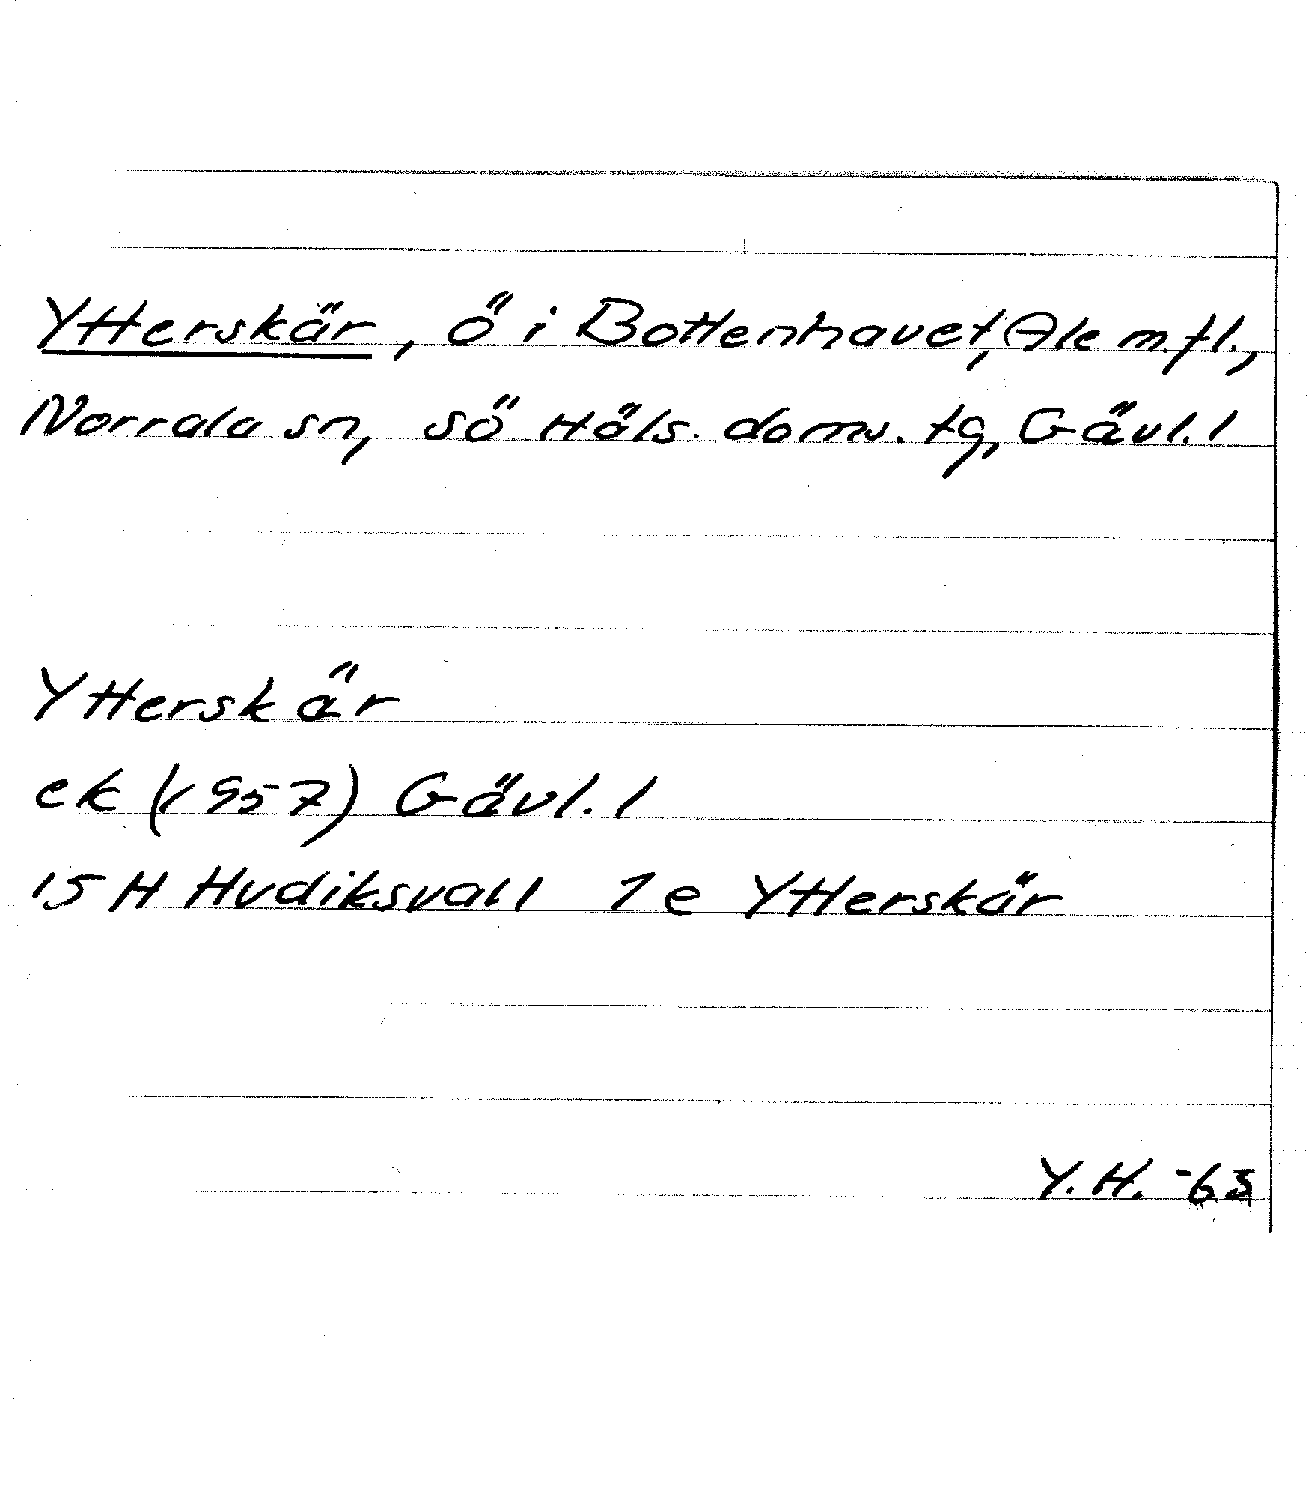 Ytterskär, ö i Bottenhavet, Ale m.fl.,
Norrala sn, sö Häls. doms. tg, Gävl. l
Ytterskär
ek (1957) Gävl. l
15 H Hudiksvall 1 e Ytterskär
Y. H. -63